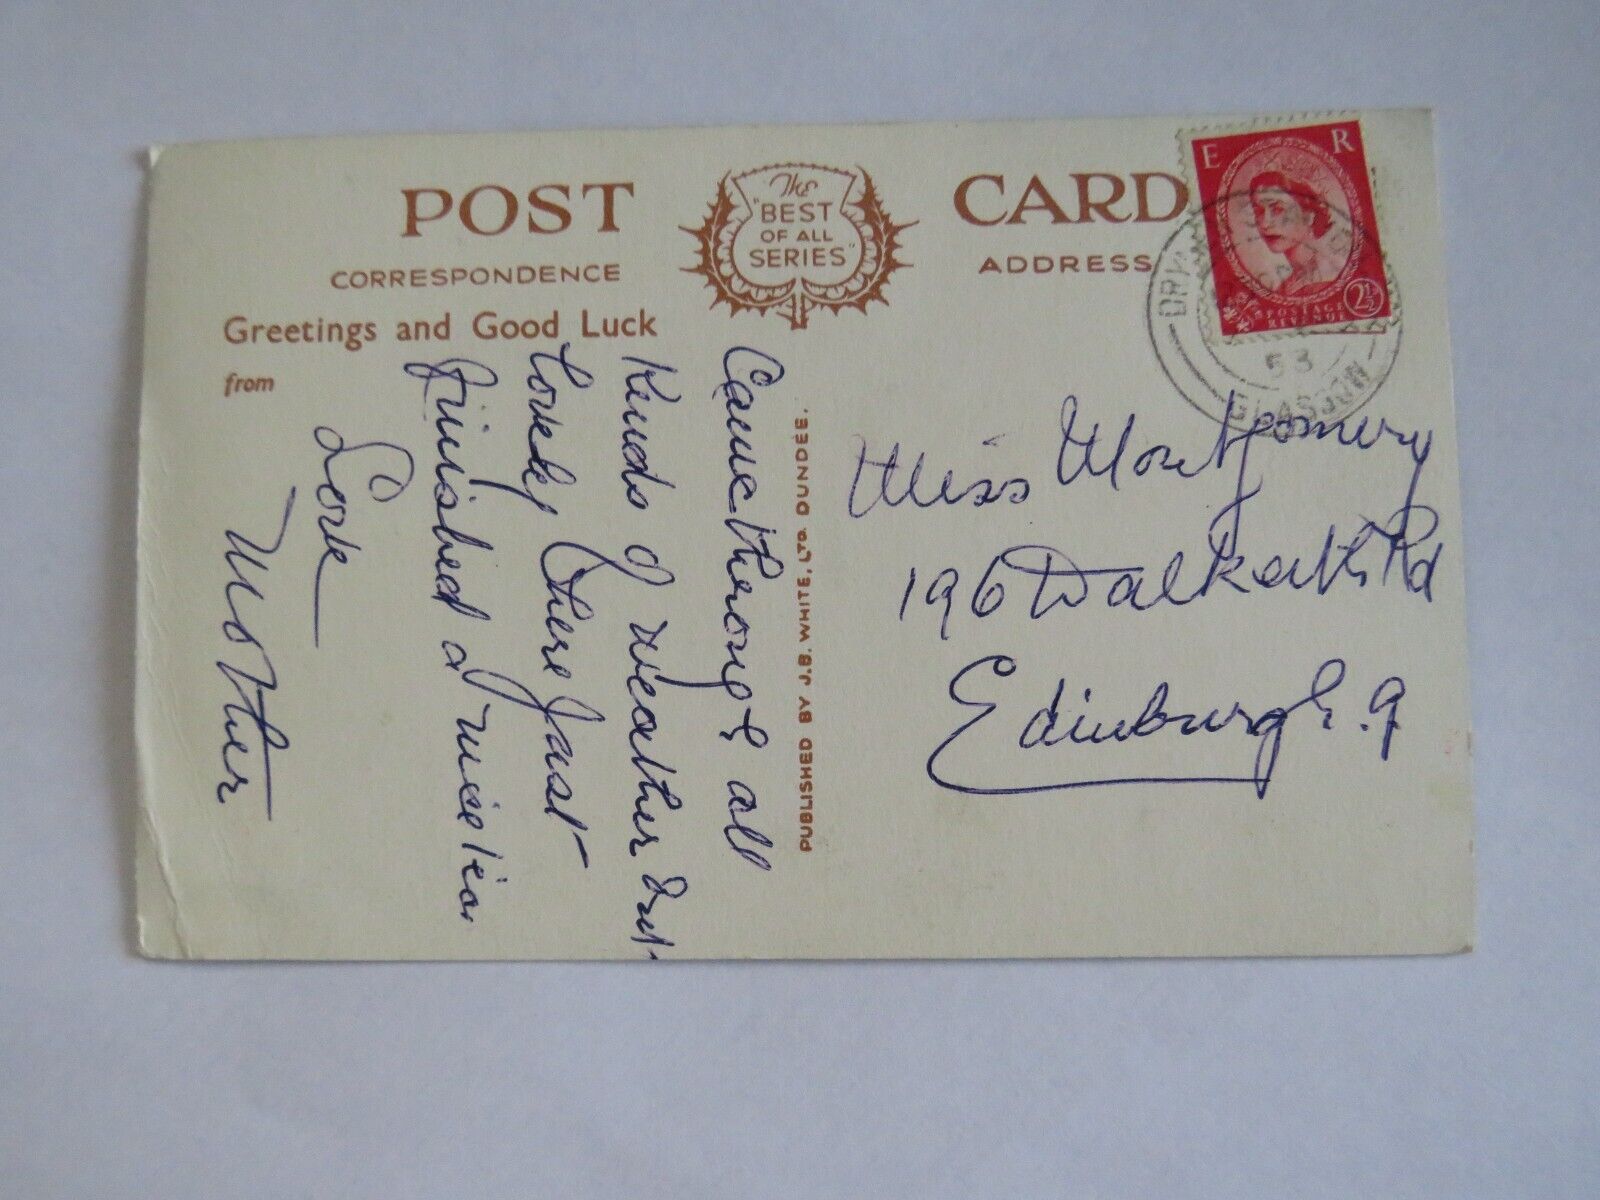 POST CARD
The
"BEST
OF ALL
SERIES"
CORRESPONDENCE
ADDRESS
Greetings and Good Luck
from
Came through all
Kinds of weather but
lovely here Just
finished a nice tea.
Love
Mother
PUBLISHED BY J.B. WHITE, LTD. DUNDEE.
Miss Montgomery
196 Dalkeith Rd
Edinburgh. 9
E R
POSTAGE
REVENUE
2½
53
GLASGOW